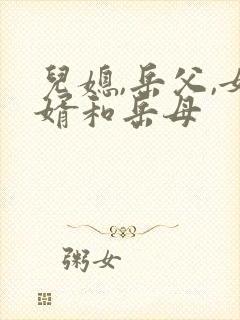 兒媳,岳父,女
婿和岳母
粥女